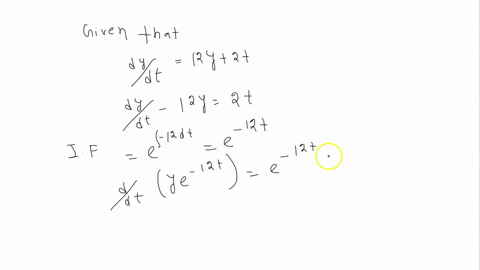 Given that
dy/dt = 12y + 2t
dy/dt - 12y = 2t
I.F = e^{∫-12dt} = e^{-12t}
d/dt (ye^{-12t}) = e^{-12t} .